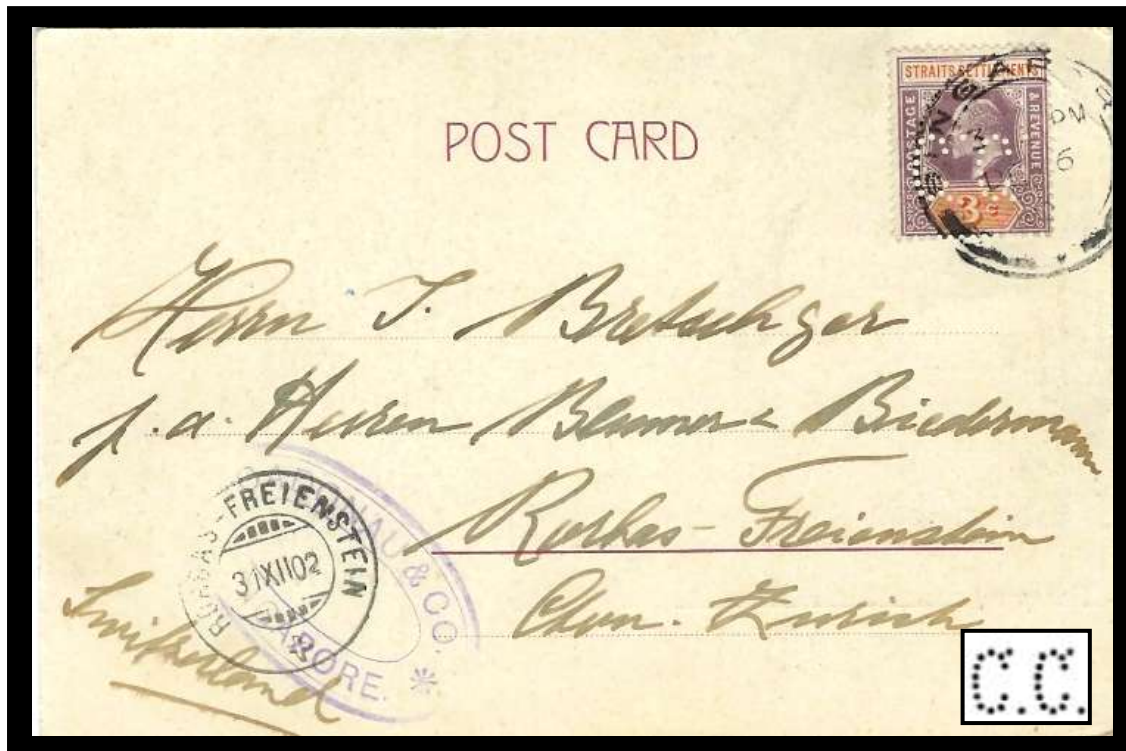 STRAITS SETTLEMENTS
POSTAGE & REVENUE
3
PM
6
POST CARD
Herrn J. Bretschger
p.a. Herren Blumer & Biedermann
Rorbas-Freienstein
Cton. Zurich
Switzerland
RORBAS-FREIENSTEIN
31XII02
& CO.
PORE.
C.C.